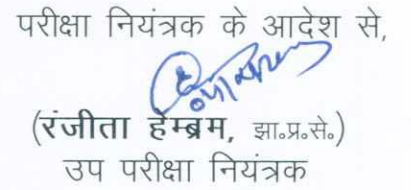 परीक्षा नियंत्रक के आदेश से,
(रंजीता हेम्ब्रम, झा०प्र०से०)
उप परीक्षा नियंत्रक